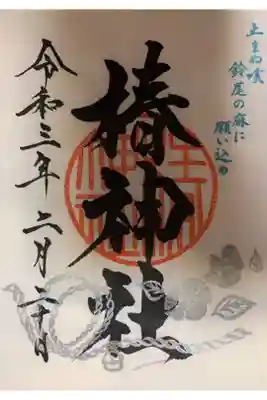 止まぬ咳
鈴尾の麻に
願い込め
椿神社
令和三年二月二十日